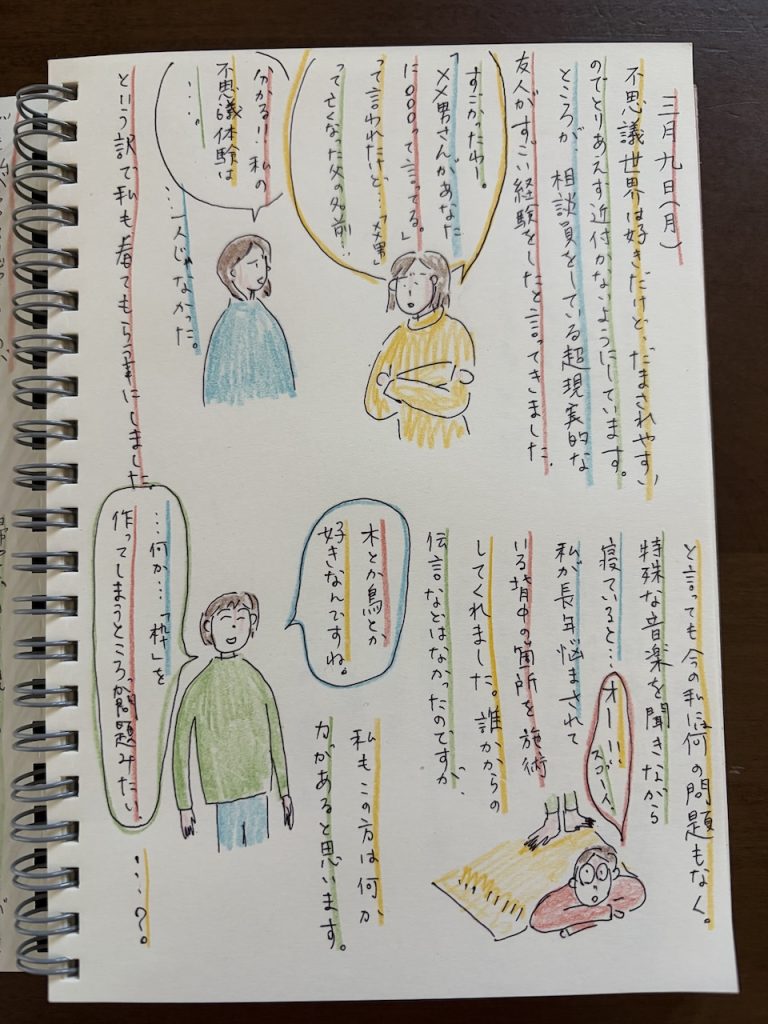 三月九日(月)
不思議世界は好きだけど、だまされやすい
のでとりあえず近付かないようにしています。
ところが 相談員をしている超現実的な
友人がすごい経験をしたと言ってきました。
すごかったわー。
「××男さんがあなた
に○○○って言ってる。」
って言われたけど、「××男」
って亡くなった父の名前…
分かる!!私の
不思議体験は
……。
…一人じゃなかった。
という訳で私も看てもらう事にしました。
と言っても今の私には何の問題もなく。
特殊な音楽を聞きながら
寝ていると…
オーッ!!
スゴーイ、
私が長年悩まされて
いる背中の箇所を施術
してくれました。誰かからの
伝言などはなかったのですが、
木とか鳥とか
好きなんですね。
私もこの方は何か
力があると思います。
…何か…「枠」を
作ってしまうところが問題みたい。
…?。